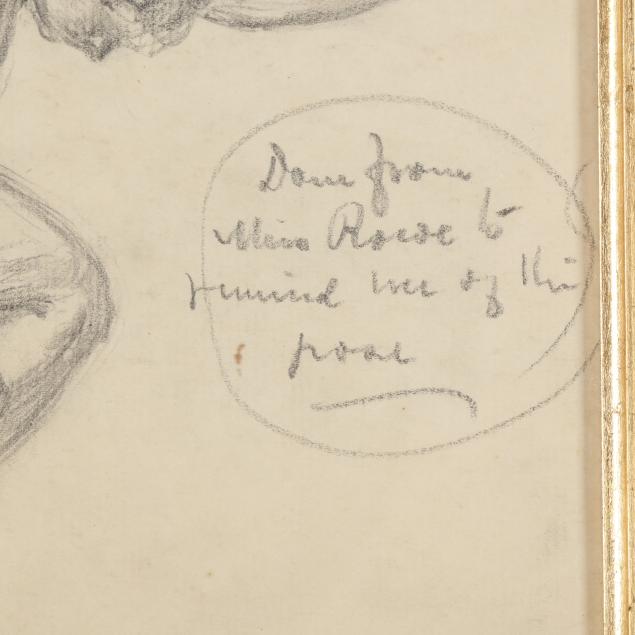 Done from
Miss Rowe to
remind me of this
pose